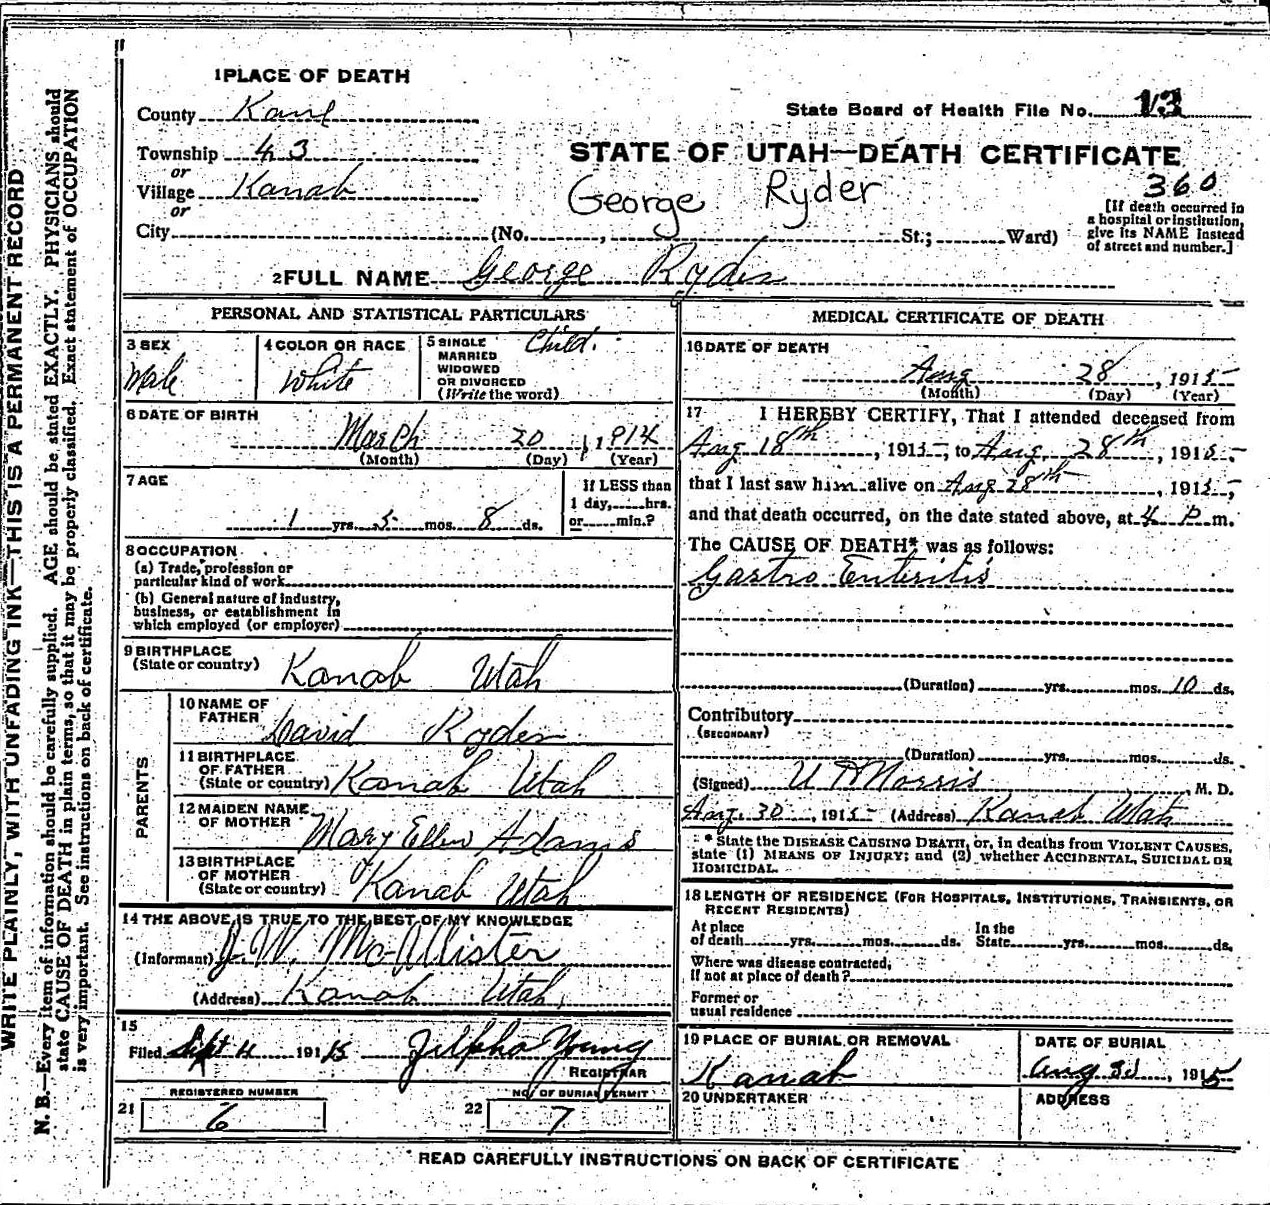 1 PLACE OF DEATH
County Kane
State Board of Health File No. 13
Township 43
or
Village Kanab
or
City (No. , St.; Ward)
STATE OF UTAH—DEATH CERTIFICATE
George Ryder
360
[If death occurred in
a hospital or institution,
give its NAME instead
of street and number.]
2 FULL NAME George Ryder
PERSONAL AND STATISTICAL PARTICULARS
3 SEX
Male
4 COLOR OR RACE
White
5 SINGLE
MARRIED
WIDOWED
OR DIVORCED
(Write the word)
Child.
6 DATE OF BIRTH
March 20, 1914
(Month) (Day) (Year)
7 AGE
1 yrs. 5 mos. 8 ds.
If LESS than
1 day, hrs.
or min.?
8 OCCUPATION
(a) Trade, profession or
particular kind of work
(b) General nature of industry,
business, or establishment in
which employed (or employer)
9 BIRTHPLACE
(State or country) Kanab Utah
PARENTS
10 NAME OF
FATHER David Ryder
11 BIRTHPLACE
OF FATHER
(State or country) Kanab Utah
12 MAIDEN NAME
OF MOTHER Mary Ellen Adams
13 BIRTHPLACE
OF MOTHER
(State or country) Kanab Utah
14 THE ABOVE IS TRUE TO THE BEST OF MY KNOWLEDGE
(Informant) J. W. McAllister
(Address) Kanab Utah
15
Filed Sept 4 1915 Zilpha Young
REGISTRAR
REGISTERED NUMBER
21 6
NO. OF BURIAL PERMIT
22 7
MEDICAL CERTIFICATE OF DEATH
16 DATE OF DEATH
Aug 28, 1915
(Month) (Day) (Year)
17 I HEREBY CERTIFY, That I attended deceased from
Aug 18th, 1915, to Aug. 28th, 1915.
that I last saw him alive on Aug 28th, 1915,
and that death occurred, on the date stated above, at 4 P m.
The CAUSE OF DEATH* was as follows:
Gastro Enteritis
(Duration) yrs. mos. 10 ds.
Contributory
(SECONDARY)
(Duration) yrs. mos. ds.
(Signed) Norris, M. D.
Aug. 30, 1915 (Address) Kanab Utah
* State the DISEASE CAUSING DEATH, or, in deaths from VIOLENT CAUSES,
state (1) MEANS OF INJURY; and (2) whether ACCIDENTAL, SUICIDAL OR
HOMICIDAL.
18 LENGTH OF RESIDENCE (FOR HOSPITALS, INSTITUTIONS, TRANSIENTS, OR
RECENT RESIDENTS)
At place
of death yrs. mos. ds.
In the
State yrs. mos. ds.
Where was disease contracted,
if not at place of death?
Former or
usual residence
19 PLACE OF BURIAL OR REMOVAL
Kanab
DATE OF BURIAL
Aug, 1915
20 UNDERTAKER
ADDRESS
READ CAREFULLY INSTRUCTIONS ON BACK OF CERTIFICATE
WRITE PLAINLY, WITH UNFADING INK—THIS IS A PERMANENT RECORD
N. B.—Every item of information should be carefully supplied. AGE should be stated EXACTLY. PHYSICIANS should
state CAUSE OF DEATH in plain terms, so that it may be properly classified. Exact statement of OCCUPATION
is very important. See instructions on back of certificate.